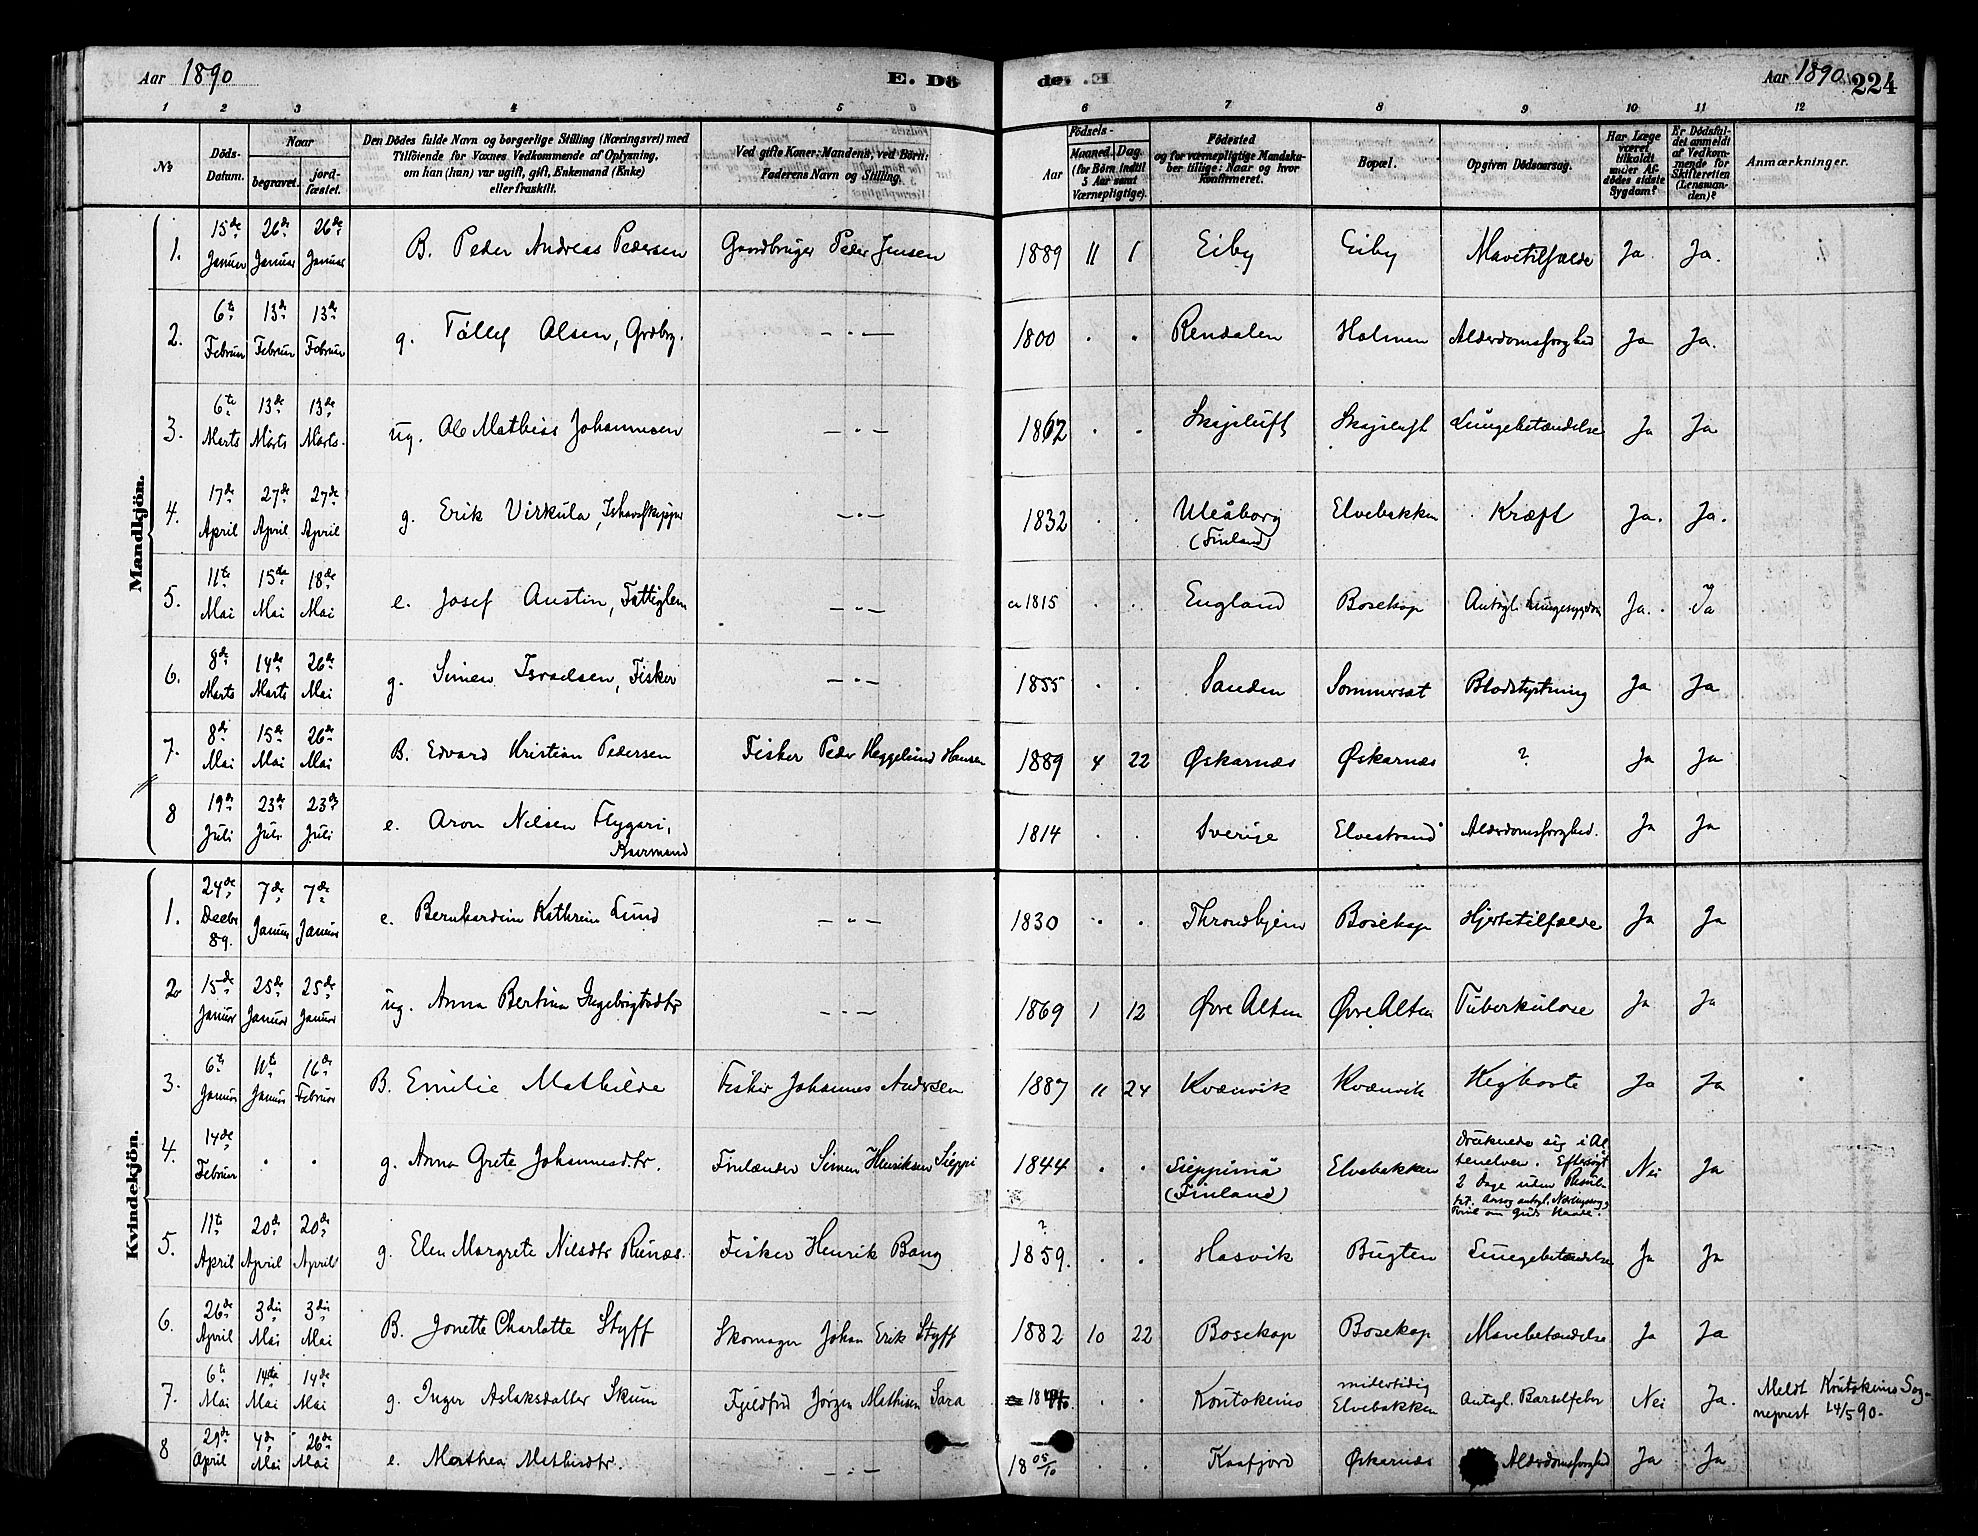 Aar 1890
E. Dö
de. E
Aar 1890 224
1 2 3 4 5 6
6 7 8 9 10 11 12
No
Döds-Datum.
Naar
begravet.
jordfæstet.
Den Dödes fulde Navn og borgerlige Stilling (Næringsvei) med
Tilföiende for Voxnes Vedkommende af Oplysning,
om han (hun) var ugift, gift, Enkemand (Enke)
eller fraskilt.
Ved gifte Koner: Mandens, ved Börn:
Faderens Navn og Stilling.
Födsels-
Aar
Maaned. Dag.
(for Börn indtil 5 Aar samt Værnepligtige).
Födested
og for værnepligtige Mandskaber tillige: Naar og hvor Konfirmeret.
Bopæl.
Opgiven Dödsaarsag.
Har Læge været tilkaldt under Afdödes sidste Sygdom?
Er Dödsfaldet anmeldt af Vedkommende for Skifteretten (Lensmanden)?
Anmærkninger.
Mandkjön.
1. 15de Januar 26de Januar 26de Januar B. Peder Andreas Pedersen Gaardbruger Peder Jensen 1889 11 1 Eiby Eiby Mavetilfælde Ja. Ja.
2. 6te Februar 13de Februar 13de Februar g. Tollef Olsen, Grdbrg. — " — 1800 . . Rendalen Holmen Alderdomssvaghed Ja Ja.
3. 6te Marts 13de Marts 13de Marts. ug. Ole Mathias Johannesen — " — 1862 . . Skojsluft Skojsluft Lungebetændelse Ja Ja
4. 17de April 27de April 27de April g. Erik Virkula, Ishavsskipper — " — 1832 . . Uleåborg (Finland) Elvebakken Kræft Ja. Ja.
5. 11te Mai 15de Mai 18de Mai e. Josef Austin, Fattiglem — " — ca 1815 . . England Bosekop Antagl. Lungesygdom Ja. Ja
6. 8de Marts 14de Marts 26de Mai g. Simen Israelsen, Fisker — " — 1855 . . Sanden Sommerset Blodstyrtning Ja Ja
7. 8de Mai 15de Mai 26de Mai B. Edvard Kristian Pedersen Fisker Peder Heggelund Hansen 1889 4 22 Øskarnæs Øskarnæs ? Ja Ja
8 19de Juli 23de Juli 23de Juli e. Aron Nilsen Flygari, 1814 . . Sverige Elvestrand Alderdomssvaghed. Ja Ja
Kvindekjön.
1. 24de Decbr 89. 7de Januar 7de Januar e. Bernhardine Kathrine Lund — " — 1830 . . Throndhjem Bosekop Hjertetilfælde Ja Ja
2 15de Januar 25de Januar 25de Januar ug. Anna Bertina Ingebrigtsdtr — " — 1869 1 12 Øvre Alten Øvre Alten Tuberkulose Ja Ja
3. 6te Januar 11te Januar 16de Februar B. Emilie Mathilde Fisker Johannes Andersen 1887 11 24 Kvænvik Kvænvik Kighoste Ja Ja
4. 14de Februar . . g. Anna Grete Johannesdtr. Finlænder Simen Henriksen Sieppi 1844 . . Sieppimä (Finland) Elvebakken Druknede sig i Altenelven. Eftersøgt 2 Dage uden Resultat. Aarsag antagl. Næringssorg, Tvivl om Guds Naade. Nei Ja
5. 11te April 20de April 20de April g. Elen Margrete Nilsdtr Runæs. Fisker Henrik Bang ? 1859. . . Hasvik Bugten Lungebetændelse Ja Ja
6. 26de April 3die Mai 3die Mai B. Jonette Charlotte Styff Skomager Johan Erik Styff 1882 10 22 Bosekop Bosekop Mavebetændelse Ja Ja
7. 6te Mai 14de Mai 14de Mai g. Inger Aslaksdatter Skum Fjeldfin Jørgen Mathisen Sara . . Koutokeino midlertidig Elvebakken Antagl. Barselfeber Nei Ja. Meldt Koutokeino Sogneprest 14/5 90.
8 29de April 4de Mai 26de Mai e. Marthea Mathisdtr. — " — 18 05/10 . . Kaafjord Øskarnæs Alderdomssvaghed Ja Ja